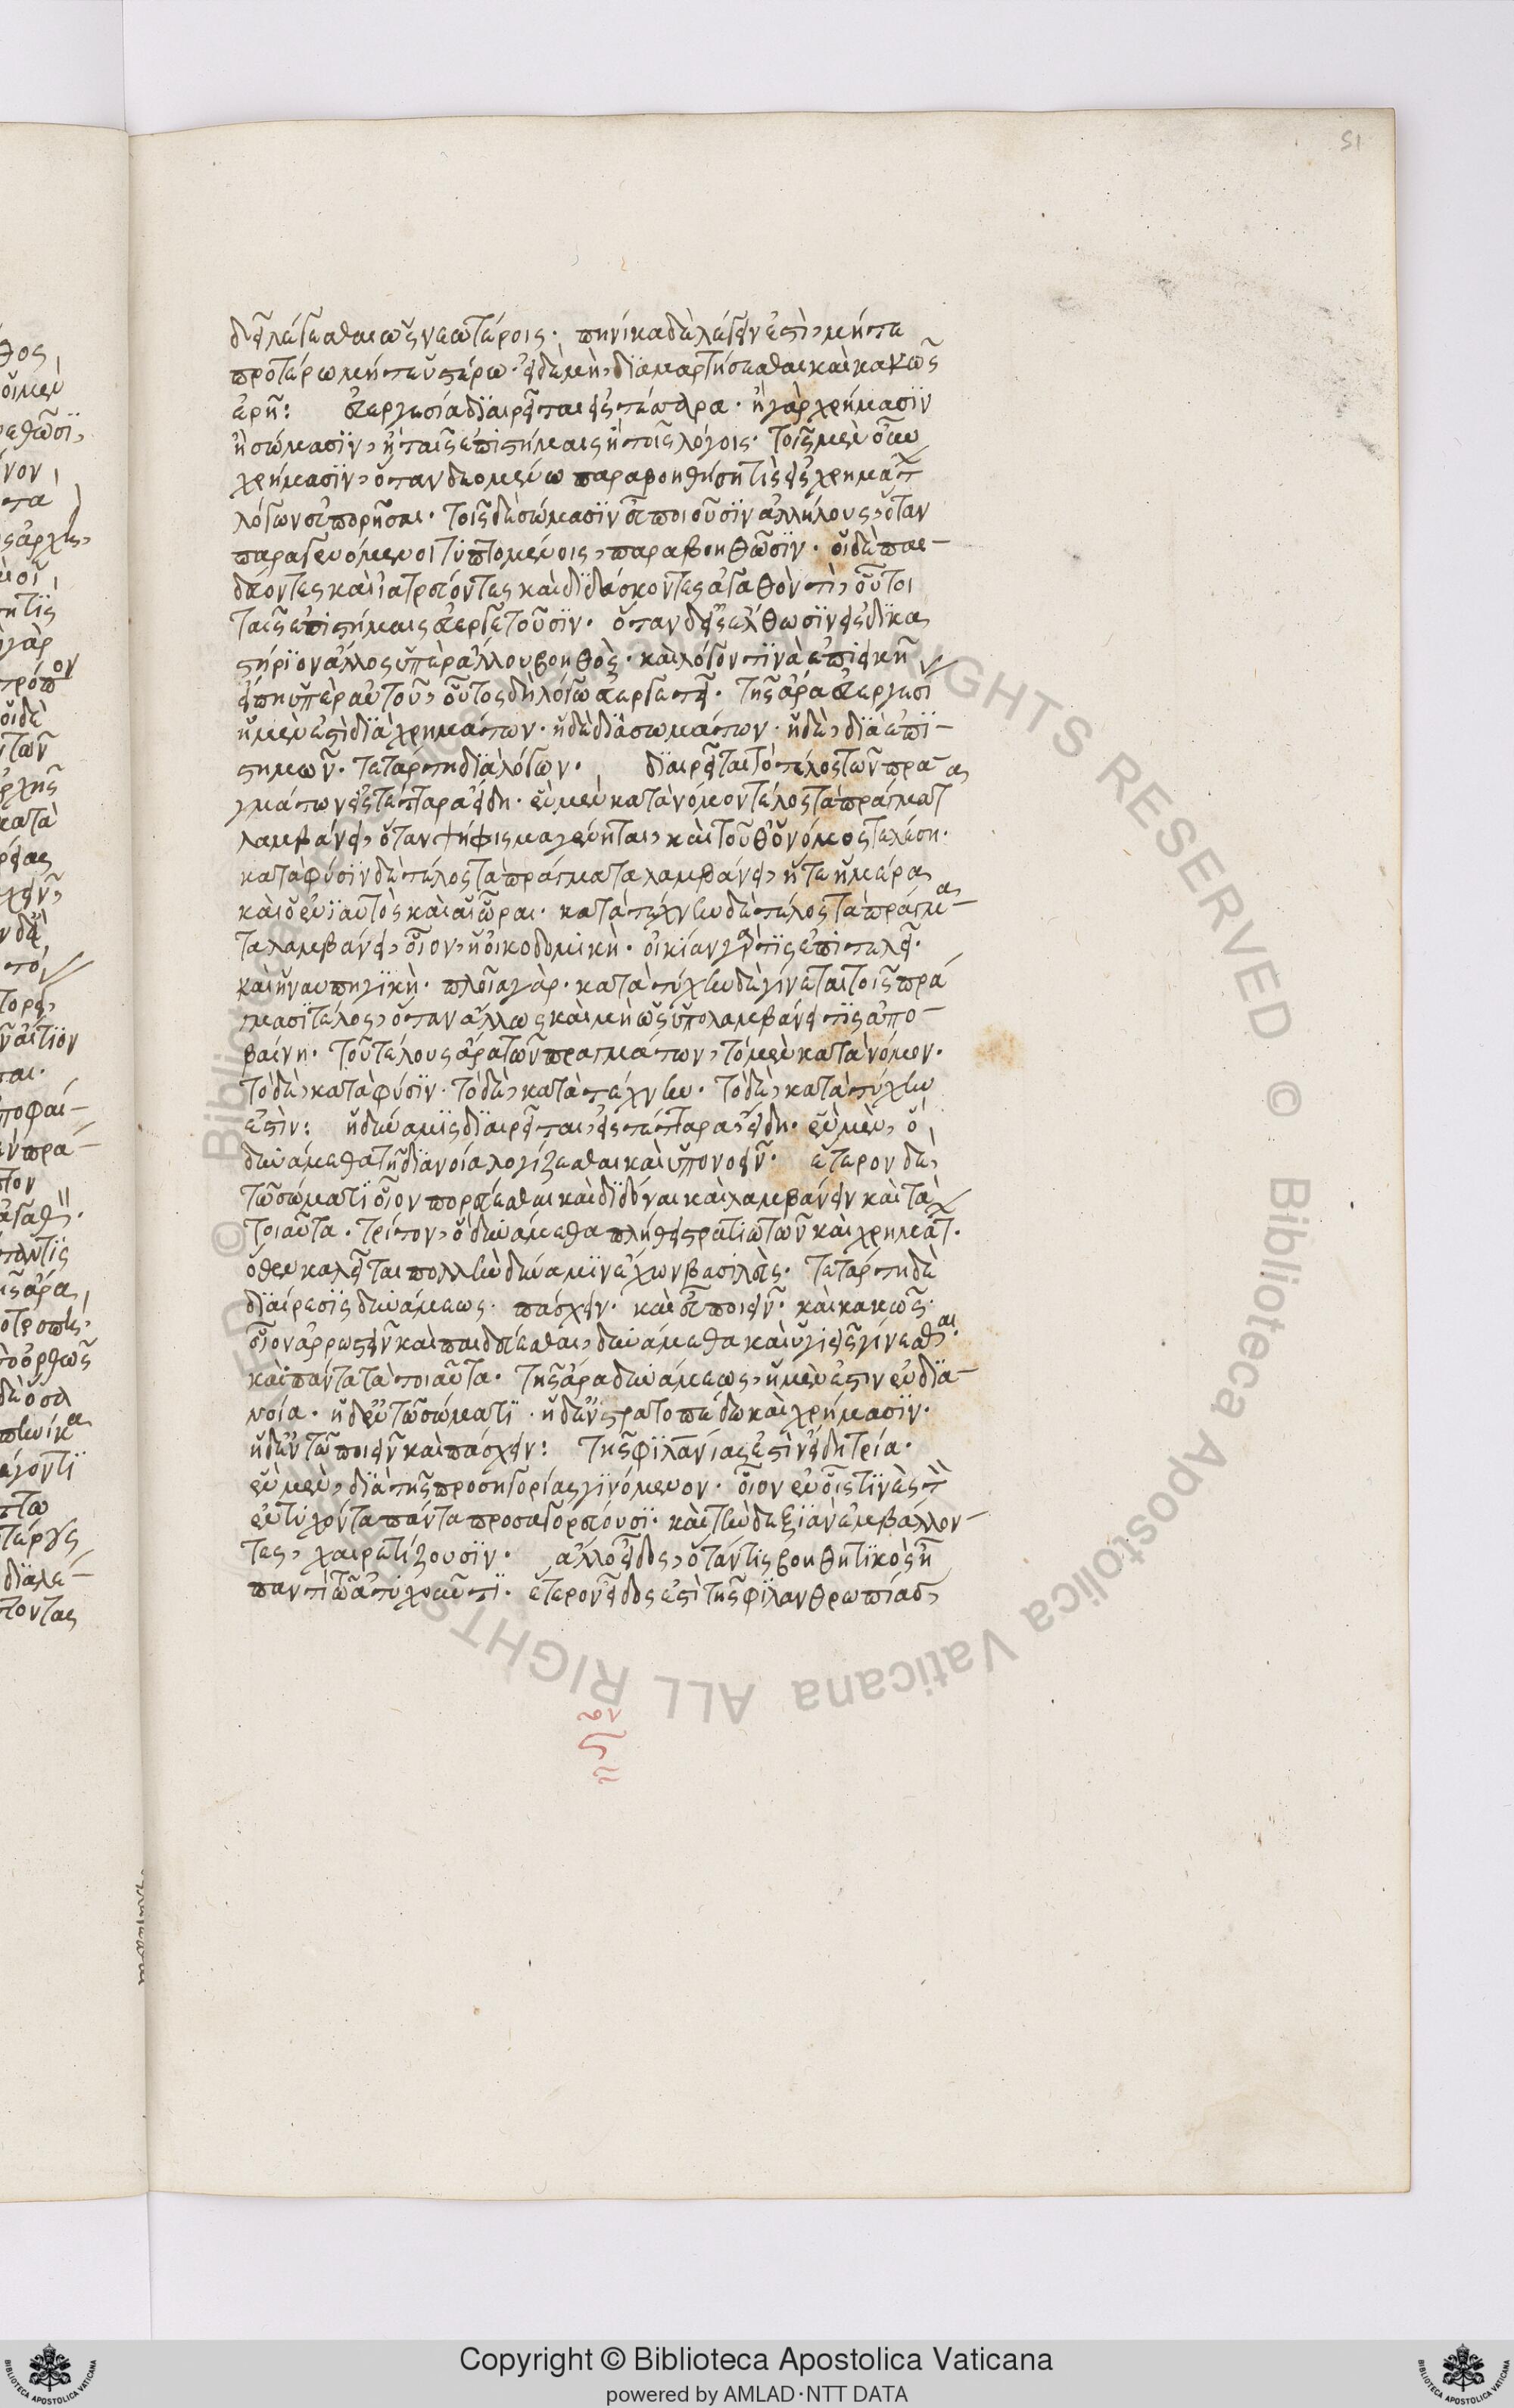 51
δεῖ λέγεσθαι ὡς νεωτέροις· πηνίκα δὲ λέγειν ἐστὶ, μήτε
προτέρω μήτε ὑστέρω· εἰ δὲ μὴ, διαμαρτήσεσθαι καὶ κακῶς
ἐρεῖ: εὐεργεσία διαιρεῖται εἰς τέσσαρα· ἢ γὰρ χρήμασιν
ἢ σώμασιν, ἢ ταῖς ἐπιστήμαις ἢ τοῖς λόγοις· τοῖς μὲν οὖν
χρήμασιν, ὅταν δεομένω παραβοηθήσῃ τὶς εἰς χρημάτ
λόγων εὐπορῆσαι· τοῖς δὲ σώμασιν εὖ ποιοῦσιν ἀλλήλους, ὅταν
παραγενόμενοι τυπτομένοις, παραβοηθῶσιν· οἱ δὲ παι-
δεύοντες καὶ ἰατρεύοντες καὶ διδάσκοντες ἀγαθὸν τὶ, οὗτοι
ταῖς ἐπιστήμαις εὐεργετοῦσιν· ὅταν δ' εἰσέλθωσιν εἰς δικα
στήριον ἄλλος ὑπὲρ ἄλλου βοηθὸς· καὶ λόγον τινὰ ἐπιεικῆ
εἴπῃ ὑπὲρ αὐτοῦ, οὗτος δὴ λόγω εὐεργετεῖ· τῆς ἄρα εὐεργεσι
ἡ μὲν ἐστὶ διὰ χρημάτων· ἡ δὲ διὰ σωμάτων· ἡ δὲ, διὰ ἐπι-
στημων· τετάρτη διὰ λόγων· διαιρεῖται τὸ τέλος τῶν πρα
γμάτων εἰς τέτταρα εἴδη· ἓν μὲν κατὰ νόμον τέλος τὰ πράγματ
λαμβάνει, ὅταν ψήφισμα γένηται, καὶ τοῦθ' ὁ νόμος τελέσῃ·
κατὰ φύσιν δὲ τέλος τὰ πράγματα λαμβάνει, ἥ τε ἡμέρα
καὶ ὁ ἐνιαυτὸς καὶ αἱ ὧραι· κατὰ τέχνην δὲ τέλος τὰ πράγμα-
τα λαμβάνει, οἷον, ἡ οἰκοδομικὴ· οἰκίαν γάρ τις ἐπιτελεῖ·
καὶ ἡ ναυπηγικὴ· πλοῖα γὰρ· κατὰ τύχην δὲ γίνεται τοῖς πρά
γμασι τέλος, ὅταν ἄλλως καὶ μὴ ὡς ὑπολαμβάνει τις ἀπο-
βαίνῃ· τοῦ τέλους ἄρα τῶν πραγμάτων, τὸ μὲν κατὰ νόμον·
τὸ δὲ, κατὰ φύσιν· τὸ δὲ, κατὰ τέχνην· τὸ δὲ, κατὰ τύχην
ἐστὶν: ἡ δύναμις διαιρεῖται, εἰς τέτταρα εἴδη· ἓν μὲν, ὃ
δυνάμεθα τῇ διανοία λογίζεσθαι καὶ ὑπονοεῖν· ἕτερον δὲ,
τῶ σώματι οἷον πορεύεσθαι καὶ διδόναι καὶ λαμβάνειν καὶ τὰ
τοιαῦτα· τρίτον, ὃ δυνάμεθα πλήθει στρατιωτῶν καὶ χρημάτ·
ὅθεν καλεῖται πολλὴν δύναμιν ἔχων βασιλεὺς· τετάρτη δὲ
διαίρεσις δυνάμεως· πάσχειν· καὶ εὖ ποιεῖν· καὶ κακῶς·
οἷον ἀρρωστεῖν καὶ παιδεύεσθαι, δυνάμεθα καὶ ὑγιεῖς γίνεσθαι·
καὶ πάντα τὰ τοιαῦτα· τῆς ἄρα δυνάμεως, ἡ μὲν ἐστιν ἐν δια-
νοία· ἡ δ' ἐν τῶ σώματι· ἡ δ' ἐν στρατοπέδω καὶ χρήμασιν·
ἡ δ' ἐν τῶ ποιεῖν καὶ πάσχειν: τῆς φιλανίας ἐστὶν εἴδη τρία·
ἓν μὲν, διὰ τῆς προσηγορίας γινόμενον· οἷον ἐν οἷς τινὲς τ
ἐντυχόντα πάντα προσαγορεύουσι· καὶ τὴν δεξιὰν ἐμβάλλον-
τες, χαιρετίζουσιν· ἄλλο εἶδος, ὅτάν τις βοηθητικὸς ᾖ
παντὶ τῶ ἀτυχοῦντι· ἕτερον εἶδος ἐστὶ τῆς φιλανθρωπίας,